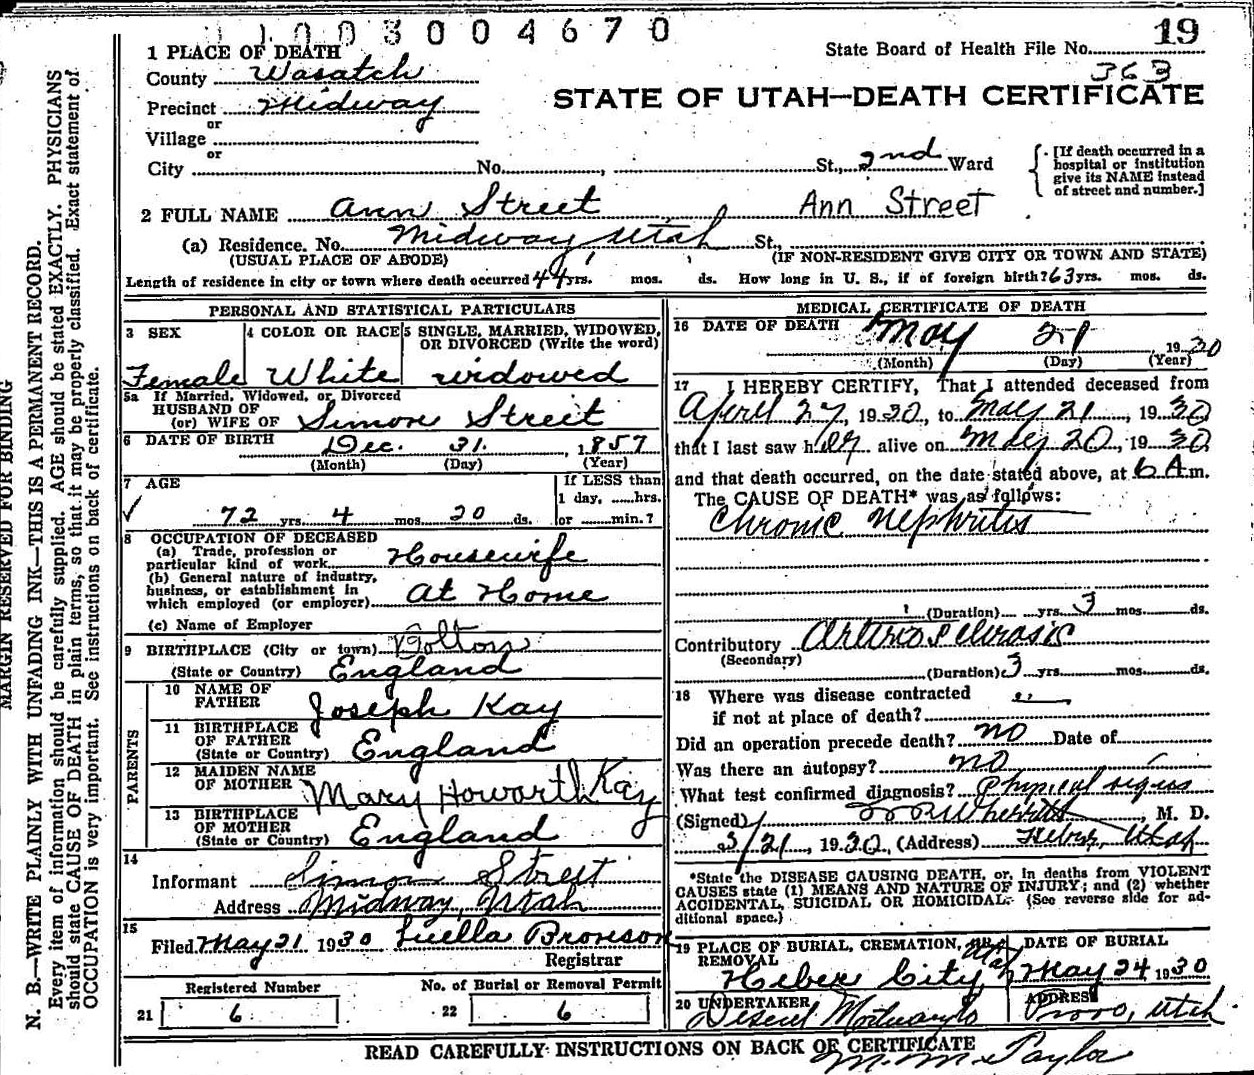 1003004670
19
1 PLACE OF DEATH
State Board of Health File No.
County Wasatch
363
Precinct Midway
STATE OF UTAH—DEATH CERTIFICATE
or
Village
or
City No. , St., 2nd Ward
[If death occurred in a hospital or institution give its NAME instead of street and number.]
2 FULL NAME Ann Street Ann Street
(a) Residence. No. Midway Utah St.,
(USUAL PLACE OF ABODE) (IF NON-RESIDENT GIVE CITY OR TOWN AND STATE)
Length of residence in city or town where death occurred 44 yrs. mos. ds. How long in U. S., if of foreign birth? 63 yrs. mos. ds.
PERSONAL AND STATISTICAL PARTICULARS
3 SEX
Female
4 COLOR OR RACE
White
5 SINGLE, MARRIED, WIDOWED,
OR DIVORCED (Write the word)
widowed
5a If Married, Widowed, or Divorced
HUSBAND OF
(or) WIFE OF Simon Street
6 DATE OF BIRTH Dec. 31, 1857
(Month) (Day) (Year)
7 AGE
If LESS than
1 day, ......hrs.
72 yrs. 4 mos. 20 ds. or ........min.?
8 OCCUPATION OF DECEASED
(a) Trade, profession or
particular kind of work Housewife
(b) General nature of industry,
business, or establishment in
which employed (or employer) At Home
(c) Name of Employer
9 BIRTHPLACE (City or town) Bolton
(State or Country) England
PARENTS
10 NAME OF
FATHER Joseph Kay
11 BIRTHPLACE
OF FATHER
(State or Country) England
12 MAIDEN NAME
OF MOTHER Mary Howorth Kay
13 BIRTHPLACE
OF MOTHER
(State or Country) England
14
Informant Simon Street
Address Midway, Utah
15
Filed May 21 1930 Luella Bronson
Registrar
Registered Number
21 6
No. of Burial or Removal Permit
22 6
MEDICAL CERTIFICATE OF DEATH
16 DATE OF DEATH May 21 1930
(Month) (Day) (Year)
17 I HEREBY CERTIFY, That I attended deceased from
April 27, 1930, to May 21, 1930
that I last saw her alive on May 20, 1930
and that death occurred, on the date stated above, at 6 A m.
The CAUSE OF DEATH* was as follows:
Chronic Nephritis
(Duration) yrs. 3 mos. ds.
Contributory Arteriosclerosis
(Secondary)
(Duration) 3 yrs. mos. ds.
18 Where was disease contracted
if not at place of death?
Did an operation precede death? no Date of
Was there an autopsy? no
What test confirmed diagnosis? Physical signs
(Signed) , M. D.
5/21, 1930, (Address) Heber, Utah
*State the DISEASE CAUSING DEATH, or, in deaths from VIOLENT
CAUSES state (1) MEANS AND NATURE OF INJURY; and (2) whether
ACCIDENTAL, SUICIDAL OR HOMICIDAL. (See reverse side for ad-
ditional space.)
19 PLACE OF BURIAL, CREMATION, OR
REMOVAL
Heber City Utah
DATE OF BURIAL
May 24 1930
20 UNDERTAKER
Deseret Mortuary Co
ADDRESS
Provo, Utah.
READ CAREFULLY INSTRUCTIONS ON BACK OF CERTIFICATE
M. M. Taylor
MARGIN RESERVED FOR BINDING
N. B.—WRITE PLAINLY WITH UNFADING INK—THIS IS A PERMANENT RECORD.
Every item of information should be carefully supplied. AGE should be stated EXACTLY. PHYSICIANS
should state CAUSE OF DEATH in plain terms, so that it may be properly classified. Exact statement of
OCCUPATION is very important. See instructions on back of certificate.